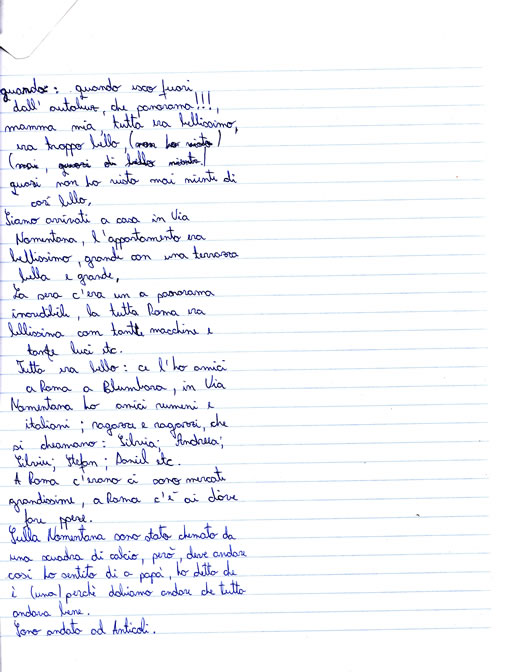 quando: quando esco fuori
dall' autobus, che panorama!!!,
mamma mia, tutta era bellissimo,
era troppo bello, (non ho visto)
(mai, quasi di bello niente)
quasi non ho visto mai niente di
così bello,
Siamo arrivati a casa in Via
Nomentana, l'appartamento era
bellissimo, grande con una terrazza
bella e grande,
La sera c'era un a panorama
incredibile, la tutta Roma era
bellissima com tante macchine e
tante luci etc.
Tutto era bello: ce l'ho amici
a Roma a , in Via
Nomentana ho amici rumeni e
italiani; ragazzi e ragazzi, che
si chiamano: Silvia; Andreea;
Silviu; Stefan; Daniel etc.
A Roma c'erano ci sono mercati
grandissime, a Roma c'è ai dove
fare spese.
Sulla Nomentana sono stato chemato da
una squadra di calcio, però, deve andare
così ho sentito di a papà, ho detto che
è (una) perchè dobiamo andare che tutto
andava bene.
Sono andato ad Anticoli.